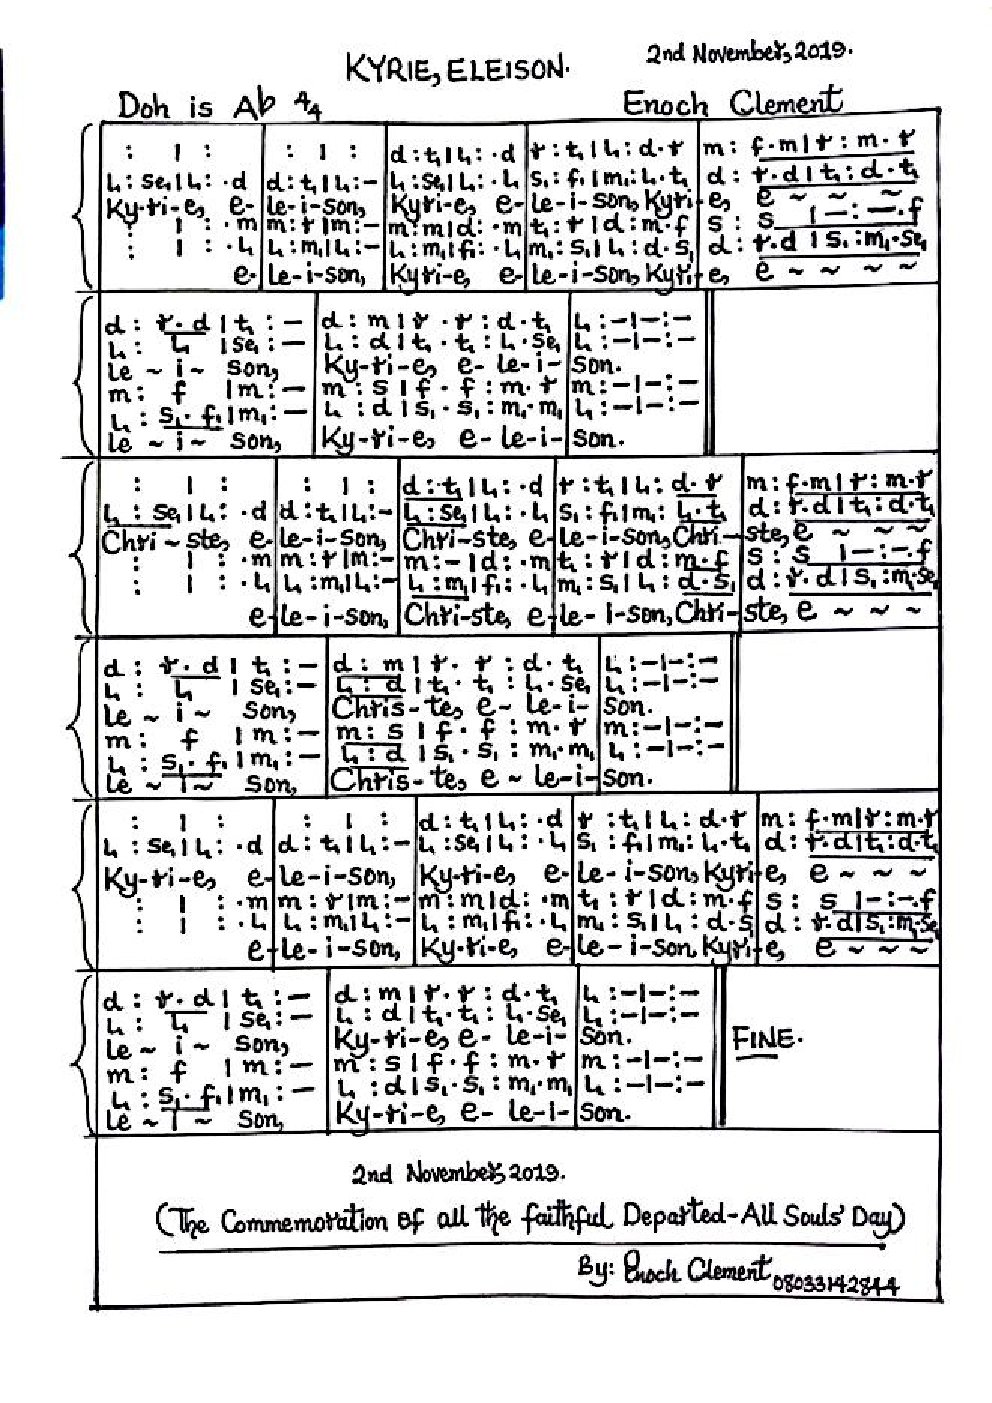 2nd November, 2019.
KYRIE, ELEISON.
Doh is Ab 4/4 Enoch Clement
: | : : | : d:t₁|l₁: .d r:t₁|l₁:d.r m: f.m|r:m.r
l₁:se₁|l₁: .d d:t₁|l₁:- l₁:se₁|l₁: .l₁ s₁:f₁|m₁:l₁.t₁ d: r.d|t₁:d.t₁
Ky-ri-e, e- le-i-son, Kyri-e, e- le-i-son, Kyri-e, e ~ ~ ~
: | : .m m:r|m:- m:m|d: .m t₁:r|d:m.f s: s |-:-.f
: | : .l₁ l₁:m₁|l₁:- l₁:m₁|f₁: .l₁ m₁:s₁|l₁:d.s₁ d: r.d|s₁:m₁.se₁
e- le-i-son, Kyri-e, e- le-i-son, Kyri-e, e ~ ~ ~ ~
d: r.d|t₁:- d:m|r.r:d.t₁ l₁:-|-:-
l₁: l₁ |se₁:- l₁:d|t₁.t₁:l₁.se₁ l₁:-|-:-
le ~ i ~ son, Ky-ri-e, e- le-i- son.
m: f |m:- m:s|f.f:m.r m:-|-:-
l₁:s₁.f₁|m₁:- l₁:d|s₁.s₁:m₁.m₁ l₁:-|-:-
le ~ i ~ son, Ky-ri-e, e- le-i- son.
: | : : | : d:t₁|l₁: .d r:t₁|l₁:d.r m: f.m|r:m.r
l₁:se₁|l₁: .d d:t₁|l₁:- l₁:se₁|l₁: .l₁ s₁:f₁|m₁:l₁.t₁ d: r.d|t₁:d.t₁
Chri ~ ste, e- le-i-son, Chri-ste, e- le-i-son, Chri-ste, e ~ ~ ~
: | : .m m:r|m:- m:-|d: .m t₁:r|d:m.f s: s |-:-.f
: | : .l₁ l₁:m₁|l₁:- l₁:m₁|f₁: .l₁ m₁:s₁|l₁:d.s₁ d: r.d|s₁:m₁.se₁
e- le-i-son, Chri-ste, e- le-i-son, Chri-ste, e ~ ~ ~
d: r.d|t₁:- d:m|r.r:d.t₁ l₁:-|-:-
l₁: l₁ |se₁:- l₁:d|t₁.t₁:l₁.se₁ l₁:-|-:-
le ~ i ~ son, Chris-te, e- le-i- son.
m: f |m:- m:s|f.f:m.r m:-|-:-
l₁:s₁.f₁|m₁:- l₁:d|s₁.s₁:m₁.m₁ l₁:-|-:-
le ~ i ~ son, Chris-te, e ~ le-i-son.
: | : : | : d:t₁|l₁: .d r:t₁|l₁:d.r m: f.m|r:m.r
l₁:se₁|l₁: .d d:t₁|l₁:- l₁:se₁|l₁: .l₁ s₁:f₁|m₁:l₁.t₁ d: r.d|t₁:d.t₁
Ky-ri-e, e- le-i-son, Ky-ri-e, e- le-i-son, Kyri-e, e ~ ~ ~
: | : .m m:r|m:- m:m|d: .m t₁:r|d:m.f s: s |-:-.f
: | : .l₁ l₁:m₁|l₁:- l₁:m₁|f₁: .l₁ m₁:s₁|l₁:d.s₁ d: r.d|s₁:m₁.se₁
e- le-i-son, Ky-ri-e, e- le-i-son, Kyri-e, e ~ ~ ~
d: r.d|t₁:- d:m|r.r:d.t₁ l₁:-|-:-
l₁: l₁ |se₁:- l₁:d|t₁.t₁:l₁.se₁ l₁:-|-:-
le ~ i ~ son, Ky-ri-e, e- le-i- son. FINE.
m: f |m:- m:s|f.f:m.r m:-|-:-
l₁:s₁.f₁|m₁:- l₁:d|s₁.s₁:m₁.m₁ l₁:-|-:-
le ~ i ~ son, Ky-ri-e, e- le-i- son.
2nd November, 2019.
(The Commemoration of all the faithful Departed-All Souls' Day)
By: Enoch Clement 08033142844